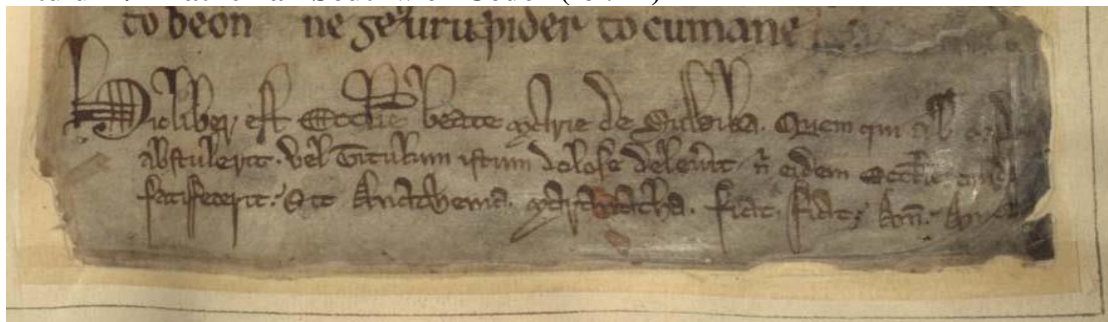 to beon ne ge to cumane
Hic liber est Ecclie beate Marie de Suwika. Quem qui ab
abstulerit. vel Titulum istum dolose delevit n eidem Ecclie
satisfecerit. Sit Anathema. Maranatha. fiat. fiat. Am. Am